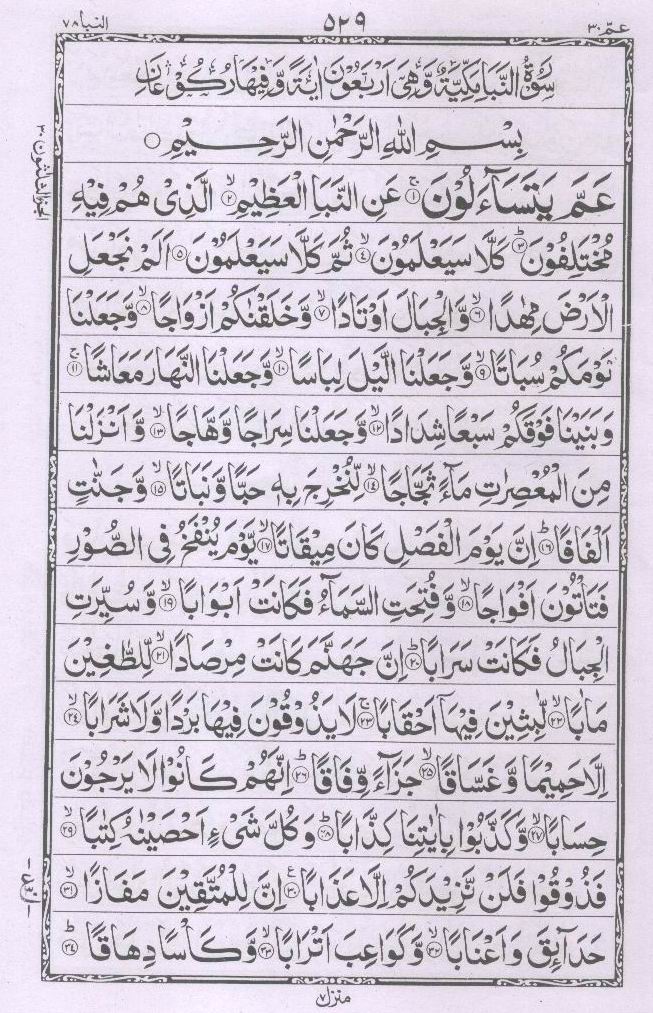 عمّ ٣٠ ٥٢٩ النبا ٧٨
سُوْرَةُ النَّبَاِ مَكِّيَّةٌ وَّهِىَ اَرْبَعُوْنَ اٰيَةً وَّفِيْهَا رُكُوْعَانِ
بِسْمِ اللّٰهِ الرَّحْمٰنِ الرَّحِيْمِ ○
عَمَّ يَتَسَآءَلُوْنَ ۚ‏﴿۱﴾ عَنِ النَّبَاِ الْعَظِيْمِ ۙ‏﴿۲﴾ الَّذِىْ هُمْ فِيْهِ
مُخْتَلِفُوْنَ ؕ‏﴿۳﴾ كَلَّا سَيَعْلَمُوْنَ ۙ‏﴿۴﴾ ثُمَّ كَلَّا سَيَعْلَمُوْنَ ﴿۵﴾ اَلَمْ نَجْعَلِ
الْاَرْضَ مِهٰدًا ۙ‏﴿۶﴾ وَّالْجِبَالَ اَوْتَادًا ۙ‏﴿۷﴾ وَّخَلَقْنٰكُمْ اَزْوَاجًا ۙ‏﴿۸﴾ وَّجَعَلْنَا
نَوْمَكُمْ سُبَاتًا ۙ‏﴿۹﴾ وَّجَعَلْنَا الَّيْلَ لِبَاسًا ۙ‏﴿۱۰﴾ وَّجَعَلْنَا النَّهَارَ مَعَاشًا ۚ‏﴿۱۱﴾
وَبَنَيْنَا فَوْقَكُمْ سَبْعًا شِدَادًا ۙ‏﴿۱۲﴾ وَّجَعَلْنَا سِرَاجًا وَّهَّاجًا ۙ‏﴿۱۳﴾ وَّاَنْزَلْنَا
مِنَ الْمُعْصِرٰتِ مَآءً ثَجَّاجًا ۙ‏﴿۱۴﴾ لِّنُخْرِجَ بِهٖ حَبًّا وَّنَبَاتًا ۙ‏﴿۱۵﴾ وَّجَنّٰتٍ
اَلْفَافًا ؕ‏﴿۱۶﴾ اِنَّ يَوْمَ الْفَصْلِ كَانَ مِيْقَاتًا ۙ‏﴿۱۷﴾ يَّوْمَ يُنْفَخُ فِى الصُّوْرِ
فَتَاْتُوْنَ اَفْوَاجًا ۙ‏﴿۱۸﴾ وَّفُتِحَتِ السَّمَآءُ فَكَانَتْ اَبْوَابًا ۙ‏﴿۱۹﴾ وَّسُيِّرَتِ
الْجِبَالُ فَكَانَتْ سَرَابًا ؕ‏﴿۲۰﴾ اِنَّ جَهَنَّمَ كَانَتْ مِرْصَادًا ۙ‏﴿۲۱﴾ لِّلطّٰغِيْنَ
مَاٰبًا ۙ‏﴿۲۲﴾ لّٰبِثِيْنَ فِيْهَآ اَحْقَابًا ۚ‏﴿۲۳﴾ لَا يَذُوْقُوْنَ فِيْهَا بَرْدًا وَّلَا شَرَابًا ۙ‏﴿۲۴﴾
اِلَّا حَمِيْمًا وَّغَسَّاقًا ۙ‏﴿۲۵﴾ جَزَآءً وِّفَاقًا ؕ‏﴿۲۶﴾ اِنَّهُمْ كَانُوْا لَا يَرْجُوْنَ
حِسَابًا ۙ‏﴿۲۷﴾ وَّكَذَّبُوْا بِاٰيٰتِنَا كِذَّابًا ؕ‏﴿۲۸﴾ وَكُلَّ شَىْءٍ اَحْصَيْنٰهُ كِتٰبًا ۙ‏﴿۲۹﴾
فَذُوْقُوْا فَلَنْ نَّزِيْدَكُمْ اِلَّا عَذَابًا ۧ‏﴿۳۰﴾ اِنَّ لِلْمُتَّقِيْنَ مَفَازًا ۙ‏﴿۳۱﴾
حَدَآئِقَ وَاَعْنَابًا ۙ‏﴿۳۲﴾ وَّكَوَاعِبَ اَتْرَابًا ۙ‏﴿۳۳﴾ وَّكَاْسًا دِهَاقًا ؕ‏﴿۳۴﴾
الجزء الثلثون ٣٠
منزل ٧